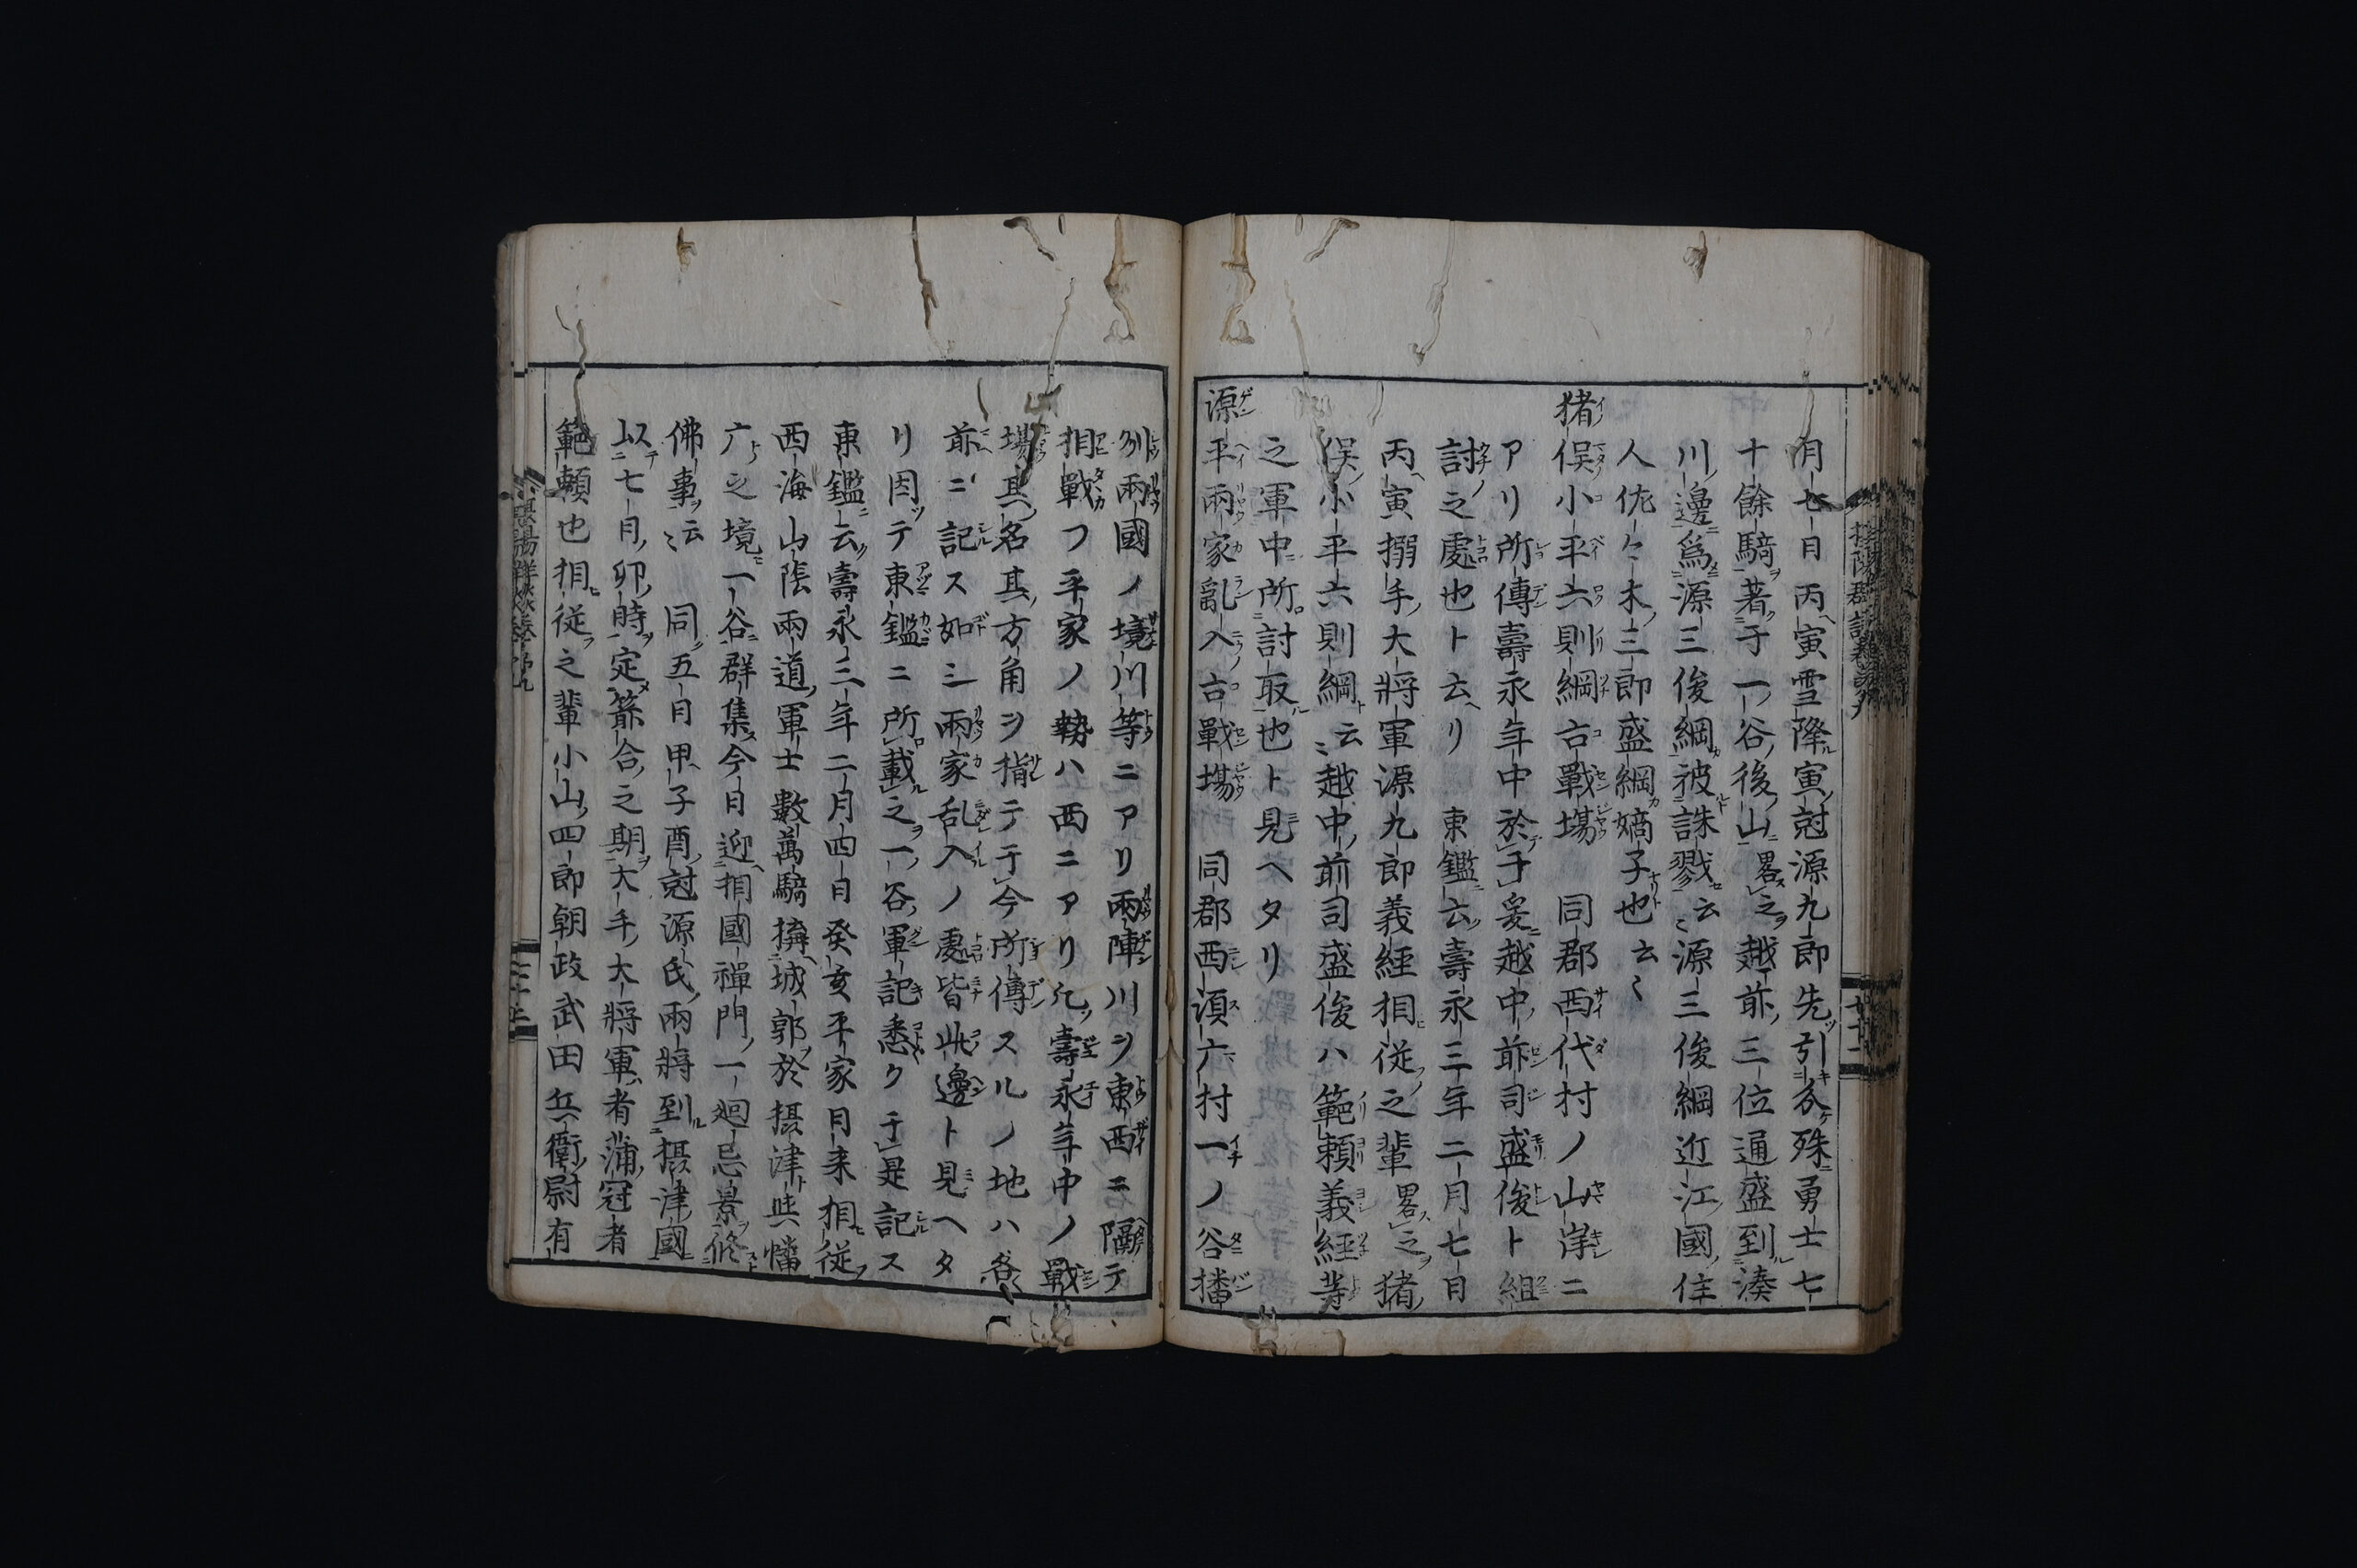 月七日丙寅雪降寅尅源九郎先引分殊勇士七
十餘騎著于一谷後山畧之越前三位通盛到湊
川邊爲源三俊綱被誅戮云〻源三俊綱近江國住
人佐〻木三郎盛綱嫡子也云〻
猪俣小平六則綱古戰塲　同郡西代村ノ山岸ニ
アリ所傳壽永年中於于爰越中前司盛俊ト組
討之處也ト云リ　東鑑云壽永三年二月七日
丙寅搦手大將軍源九郎義經相從之輩畧之猪
俣小平六則綱云〻越中前司盛俊ハ範頼義經等
之軍中所討取也ト見ヘタリ
源平兩家亂入古戰塲　同郡西須广村一ノ谷播
州兩國ノ境川等ニアリ兩陣川ヲ東西ニ隔テ
相戰フ平家ノ勢ハ西ニアリ凡壽永年中ノ戰
塲其名其方角ヲ指テ于今所傳スルノ地ハ各
前ニ記ス如シ兩家乱入ノ處皆此邊ト見ヘタ
リ因テ東鑑ニ所載之一谷軍記悉ク于是記ス
東鑑云壽永三年二月四日癸亥平家日来相從
西海山陰兩道軍士數萬騎搆城郭於摂津與幡
广之境一谷群集今日迎相國禪門一廻忌景修
佛事云〻　同五日甲子酉尅源氏兩將到摂津國
以七日卯時定箭合之期大手大將軍者蒲冠者
範頼也相從之輩小山四郎朝政武田兵衛尉有